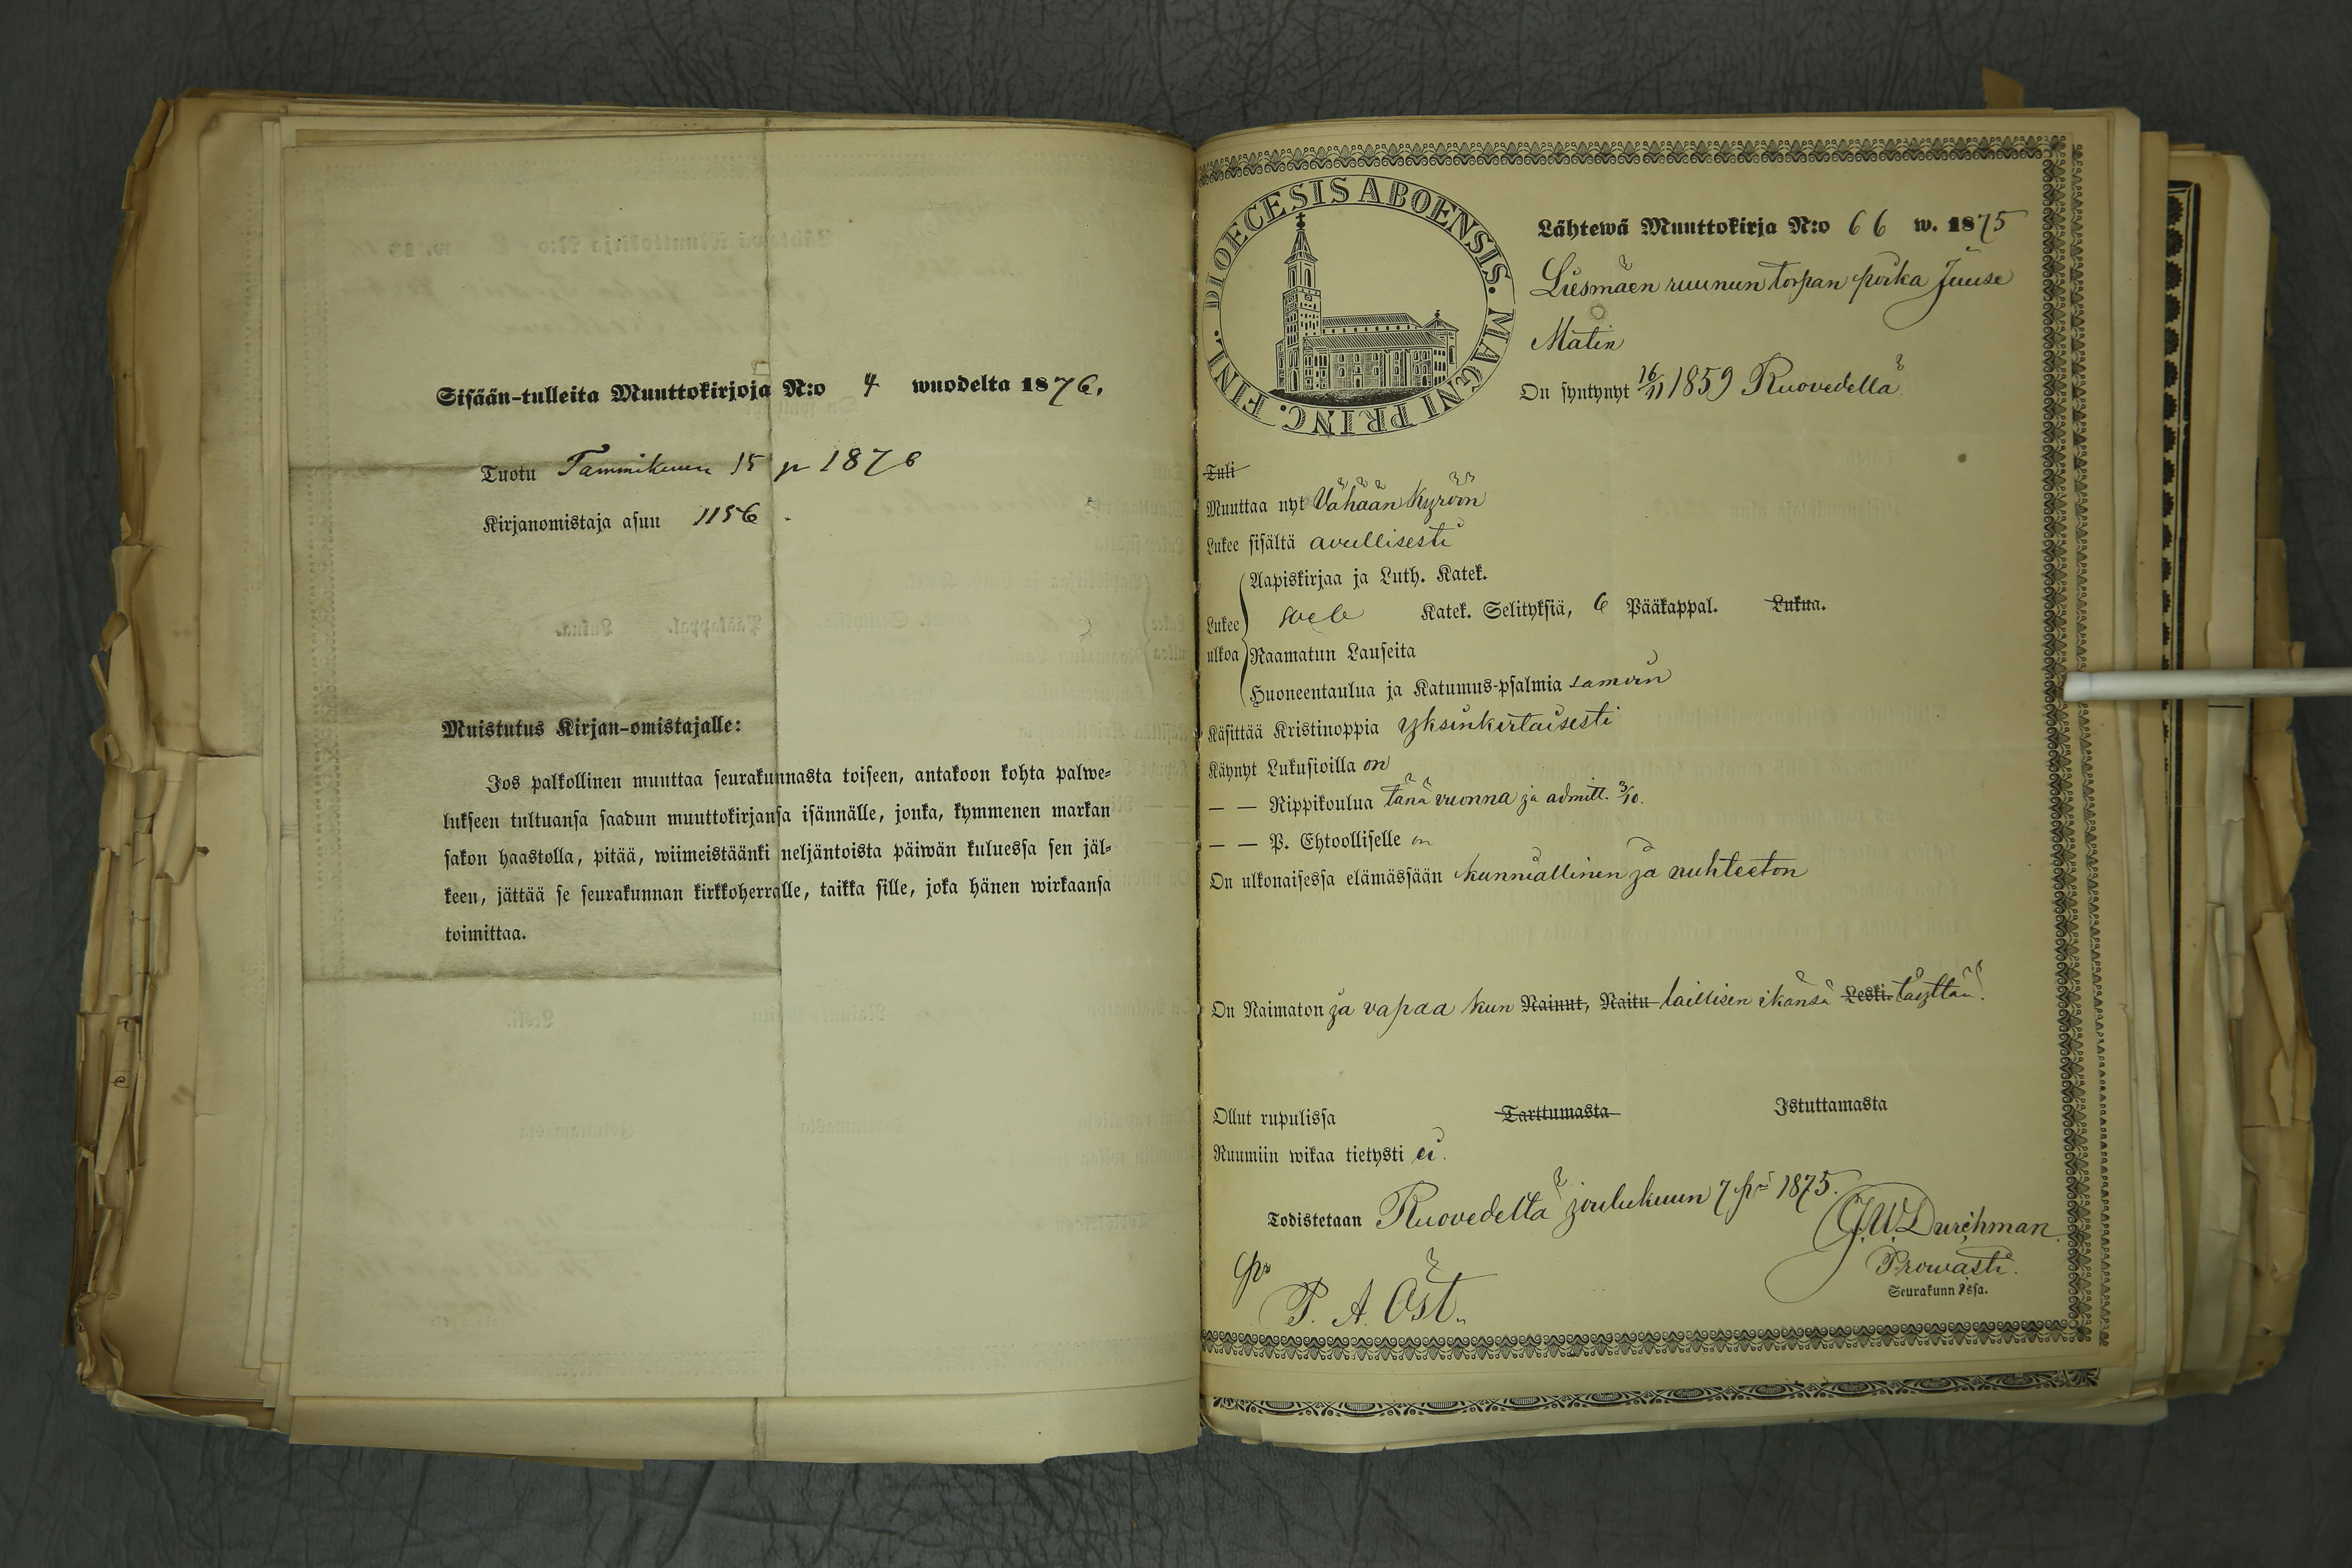 Sisään-tulleita Muuttokirjoja N:o 4 wuodelta 1876.
Tuotu Tammikuun 15 p 1876
Kirjanomistaja asuu 1156.
Muistutus Kirjan-omistajalle:
Jos palkollinen muuttaa seurakunnasta toiseen, antakoon kohta palwe-
lukseen tultuansa saadun muuttokirjansa isännälle, jonka, kymmenen markan
sakon haastolla, pitää, wiimeistäänki neljäntoista päiwän kuluessa sen jäl-
keen, jättää se seurakunnan kirkkoherralle, taikka sille, joka hänen wirkaansa
toimittaa.
DIOECESIS ABOENSIS. MAGNI PRINC. FINL.
Lähtewä Muuttokirja N:o 66 w. 1875
Liesmäen ruunun torpan poika Juuse
Matin
On syntynyt 16/11 1859 Ruovedellä
Tuli
Muuttaa nyt Vähään Kyröön
Lukee sisältä avullisesti
Aapiskirjaa ja Luth. Katek.
Lukee Katek. Selityksiä, 6 Pääkappal. Lukua.
ulkoa Raamatun Lauseita
Huoneentaulua ja Katumus-psalmia samoin
Käsittää Kristinoppia yksinkertaisesti
Käynyt Lukusioilla on
— — Rippikoulua tänä vuonna ja admitt. 3/10.
— — P. Ehtoolliselle on
On ulkonaisessa elämässään kunniallinen ja nuhteeton
On Naimaton ja vapaa kun Nainut, Naitu laillisen ikänsä Leski täyttää.
Ollut rupulissa Tarttumasta Istuttamasta
Ruumiin wikaa tietysti ei.
Todistetaan Ruovedeltä joulukuun 7 pnä 1875.
G.W. Durchman
Prowasti.
Seurakunnissa.
P. A. Öst.